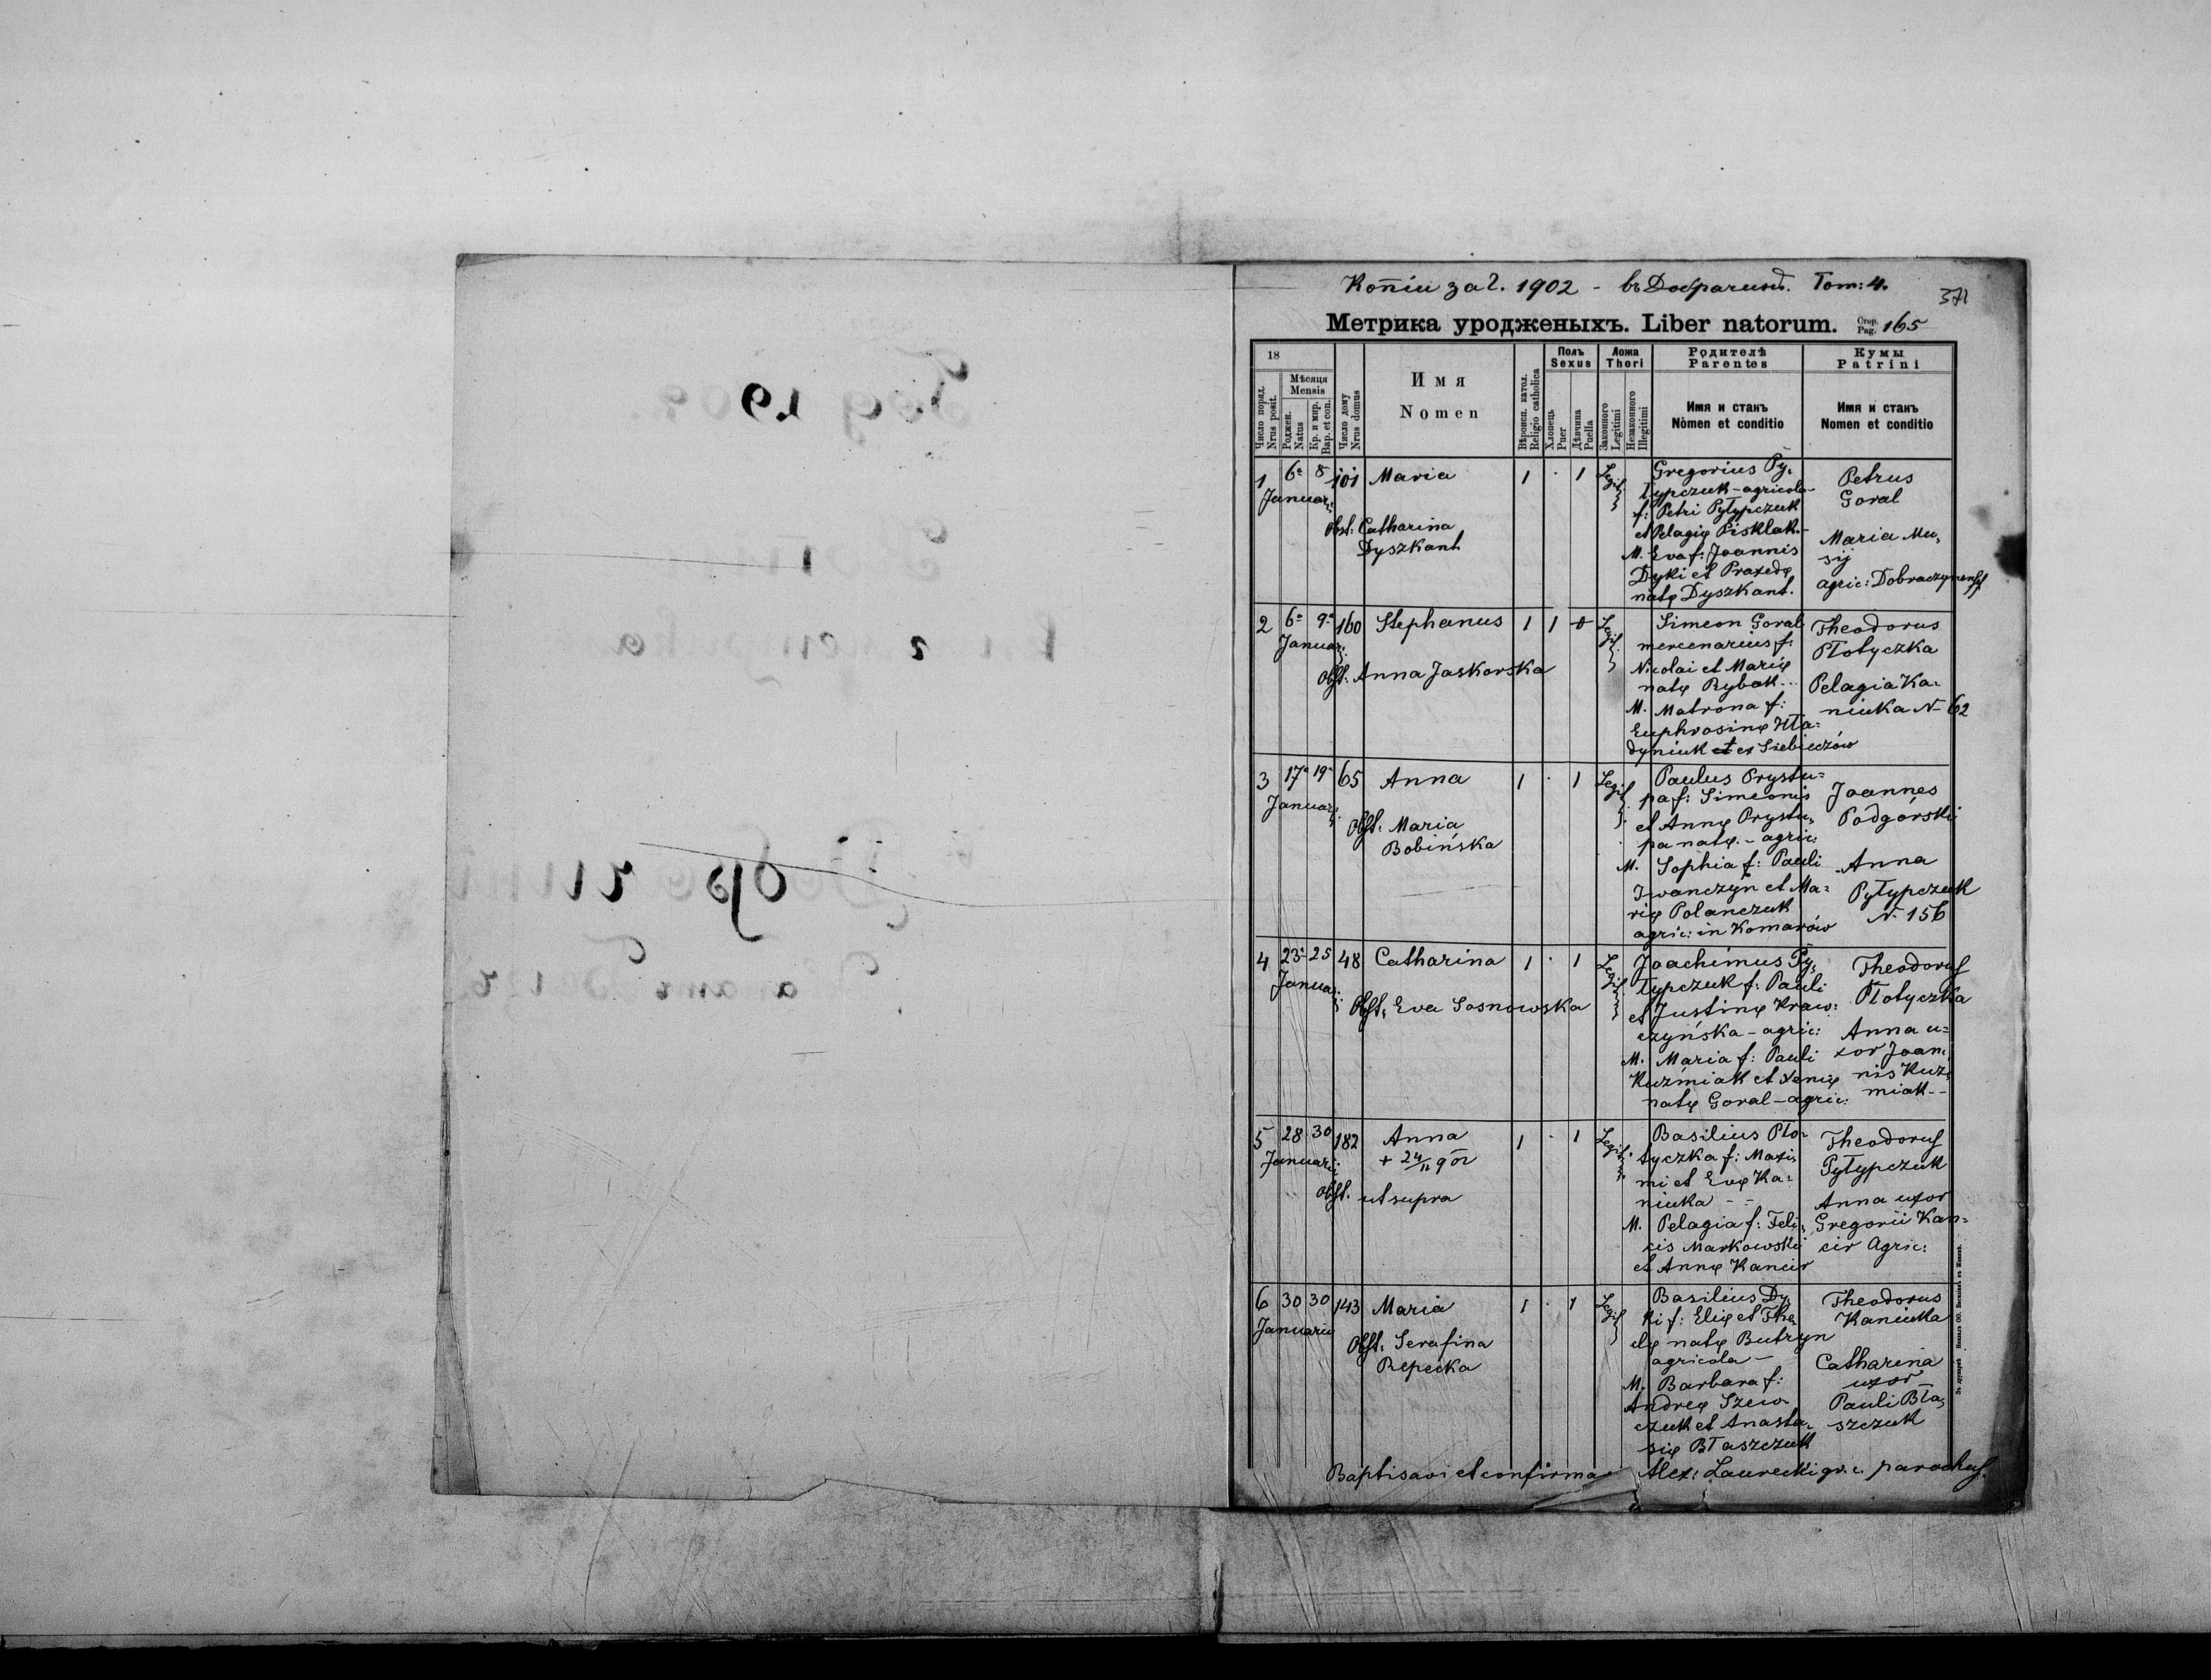 Копіи за г. 1902 - въ Добрачинѣ. Tom: 4.
371
Метрика уродженыхъ. Liber natorum. Стор. Pag. 165
18
Число поряд. Nrus posit.
Мѣсяця Mensis
Роджен. Natus
Кр. и мир. Bap. et con.
Число дому Nrus domus
Имя
Nomen
Вѣроисп. катол. Religio catholica
Полъ Sexus
Хлопець Puer
Дѣвчина Puella
Ложа Thori
Законного Legitimi
Незаконного Illegitimi
Родителѣ Parentes
Имя и станъ
Nomen et conditio
Кумы Patrini
Имя и станъ
Nomen et conditio
1 6a 8 Januarii 101 Maria 1 · 1 Legit.
Obst: Catharina
Dyszkant
Gregorius Py-
łypczuk - agricola -
f: Petri Pyłypczuk
et Pelagię Pisklak. -
M. Eva f: Joannis
Dyki et Praxedę
natę Dyszkant.
Petrus
Goral
Maria Mu-
sij
agric: Dobraczynenses
2 6a 9a Januarii 160 Stephanus 1 1 0 Legit.
Obst. Anna Jaskorska
Simeon Goral
mercenarius f:
Nicolai et Marię
natę Rybak...
M. Matrona f:
Euphrosinę Hła-
dyniuk et ex Siebieczów
Theodorus
Płotyczka
Pelagia Ka-
niuka N 62
3 17a 19a Januarii 65 Anna 1 · 1 Legit.
Obst: Maria
Bobińska
Paulus Prystu-
pa f: Simeonis
et Annę Prystu-
pa natę. - agric:
M. Sophia f: Pauli
Iwanczyn et Ma-
rię Polanczuk
agric: in Komarów
Joannes
Podgórski
Anna
Pyłypczuk
N. 156
4 23a 25 Januarii 48 Catharina 1 · 1 Legit.
Obst: Eva Sosnowska
Joachimus Py-
łypczuk f: Pauli
et Justinę Kraw-
czyńska - agric:
M. Maria f: Pauli
Kuźmiak et Xenię
natę Goral - agric:
Theodorus
Płotyczka
Anna u-
xor Joan-
nis Kuź-
miak - -
5 28 30 Januarii 182 Anna 1 · 1 Legit.
+ 24/11 902
Obst. ut supra
Basilius Pło-
tyczka f: Maxi-
mi et Evę Ka-
niuka - -
M. Pelagia f: Feli-
cis Markowski
et Annę Kancir
Theodorus
Pyłypczuk
Anna uxor
Gregorii Kan-
cir Agric:
6 30 30 Januarii 143 Maria 1 · 1 Legit.
Obst: Serafina
Repecka
Basilius Dy-
ki f: Elię et The-
clę natę Butryn
agricola -
M. Barbara f:
Andreę Szew-
czuk et Anasta-
się Błaszczuk
Theodorus
Kaniuka
Catharina
uxor
Pauli Bła-
szczuk
Baptisavi et confirma Alex: Laurecki gr. c. parochus.